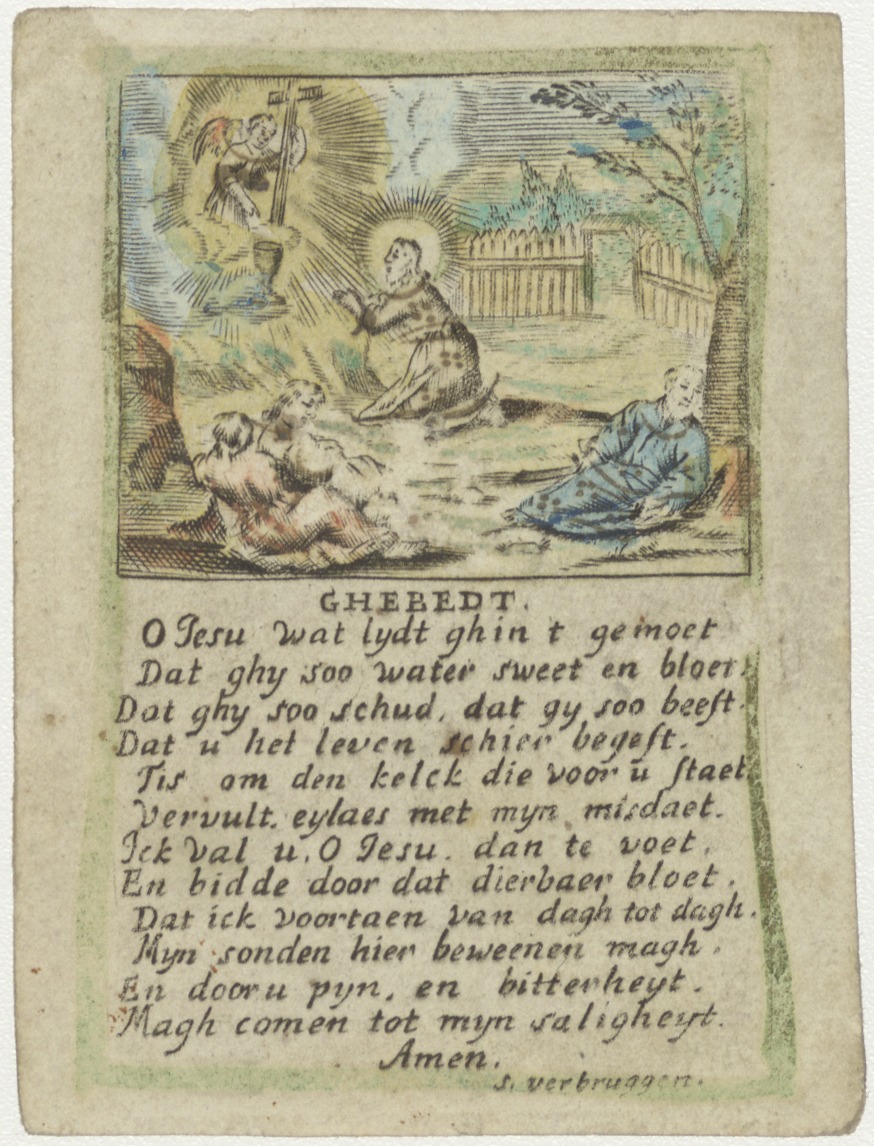 GHEBEDT.
O Jesu wat lydt ghin t gemoet
Dat ghy soo water sweet en bloet.
Dat ghy soo schud, dat gy soo beeft.
Dat u het leven schier begeft.
Tis om den kelck die voor u staet
Vervult, eylaes met myn misdaet.
Ick val u, O Jesu. dan te voet.
En bidde door dat dierbaer bloet.
Dat ick voortaen van dagh tot dagh.
Myn sonden hier beweenen magh.
En door u pyn, en bitterheyt.
Magh comen tot myn saligheyt.
Amen.
s. verbruggen.